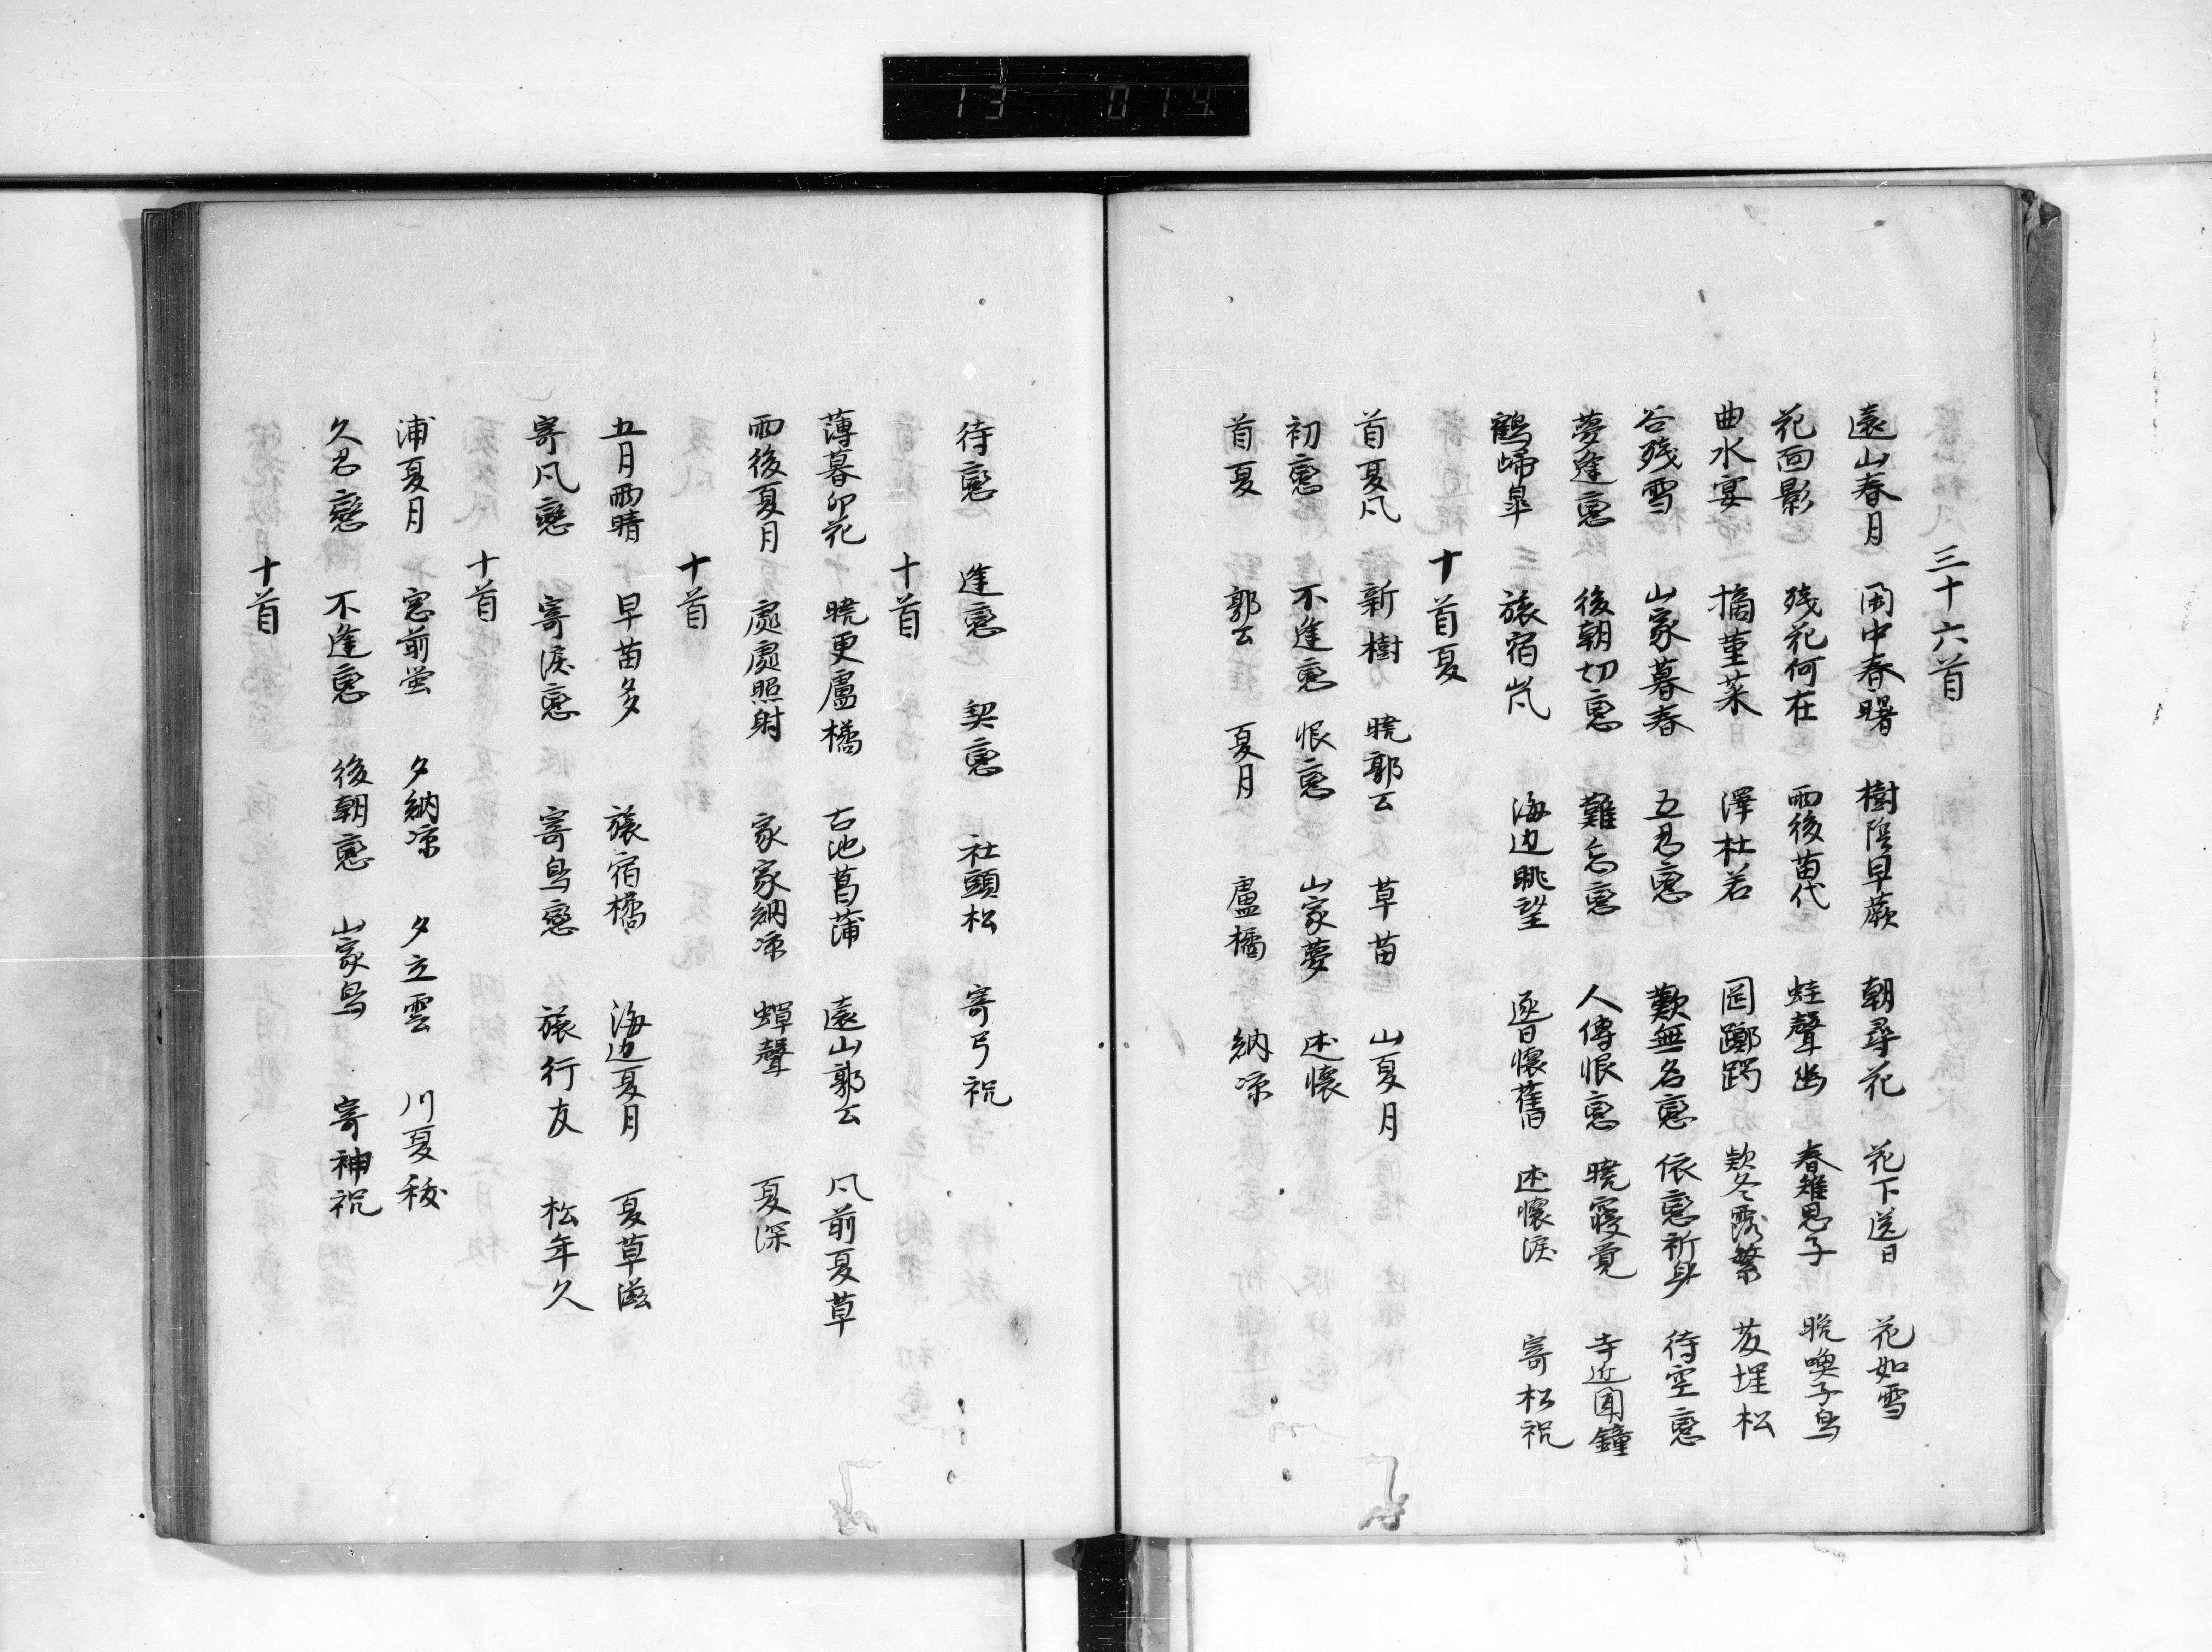 13 014
三十六首
遠山春月 閑中春曙 樹陰早蕨 朝尋花 花下送日 花如雪
花回影 残花何在 雨後苗代 蛙聲幽 春雉思子 晩喚子鳥
曲水宴 摘菫菜 澤杜若 岡躑躅 欵冬露繁 藤埋松
谷残雪 山家暮春 五忍戀 歎無名戀 依戀祈身 待空戀
夢逢戀 後朝切戀 難忘戀 人傳恨戀 暁寝覚 寺近聞鐘
鶴歸皐 旅宿嵐 海辺眺望 逐日懐舊 述懐涙 寄松祝
十首夏
首夏凡 新樹 暁郭公 草苗 山夏月
初戀 不逢戀 恨戀 山家夢 述懐
首夏 郭公 夏月 盧橘 納凉
待戀 逢戀 契戀 社頭松 寄弓祝
十首
薄暮卯花 暁更盧橘 古池菖蒲 遠山郭公 凡前夏草
雨後夏月 處處照射 家家納凉 蟬聲 夏深
十首
五月雨晴 早苗多 旅宿橘 海辺夏月 夏草滋
寄凡戀 寄涙戀 寄鳥戀 旅行友 松年久
十首
浦夏月 窓前蛍 夕納凉 夕立雲 川夏祓
久忍戀 不逢戀 後朝戀 山家鳥 寄神祝
十首